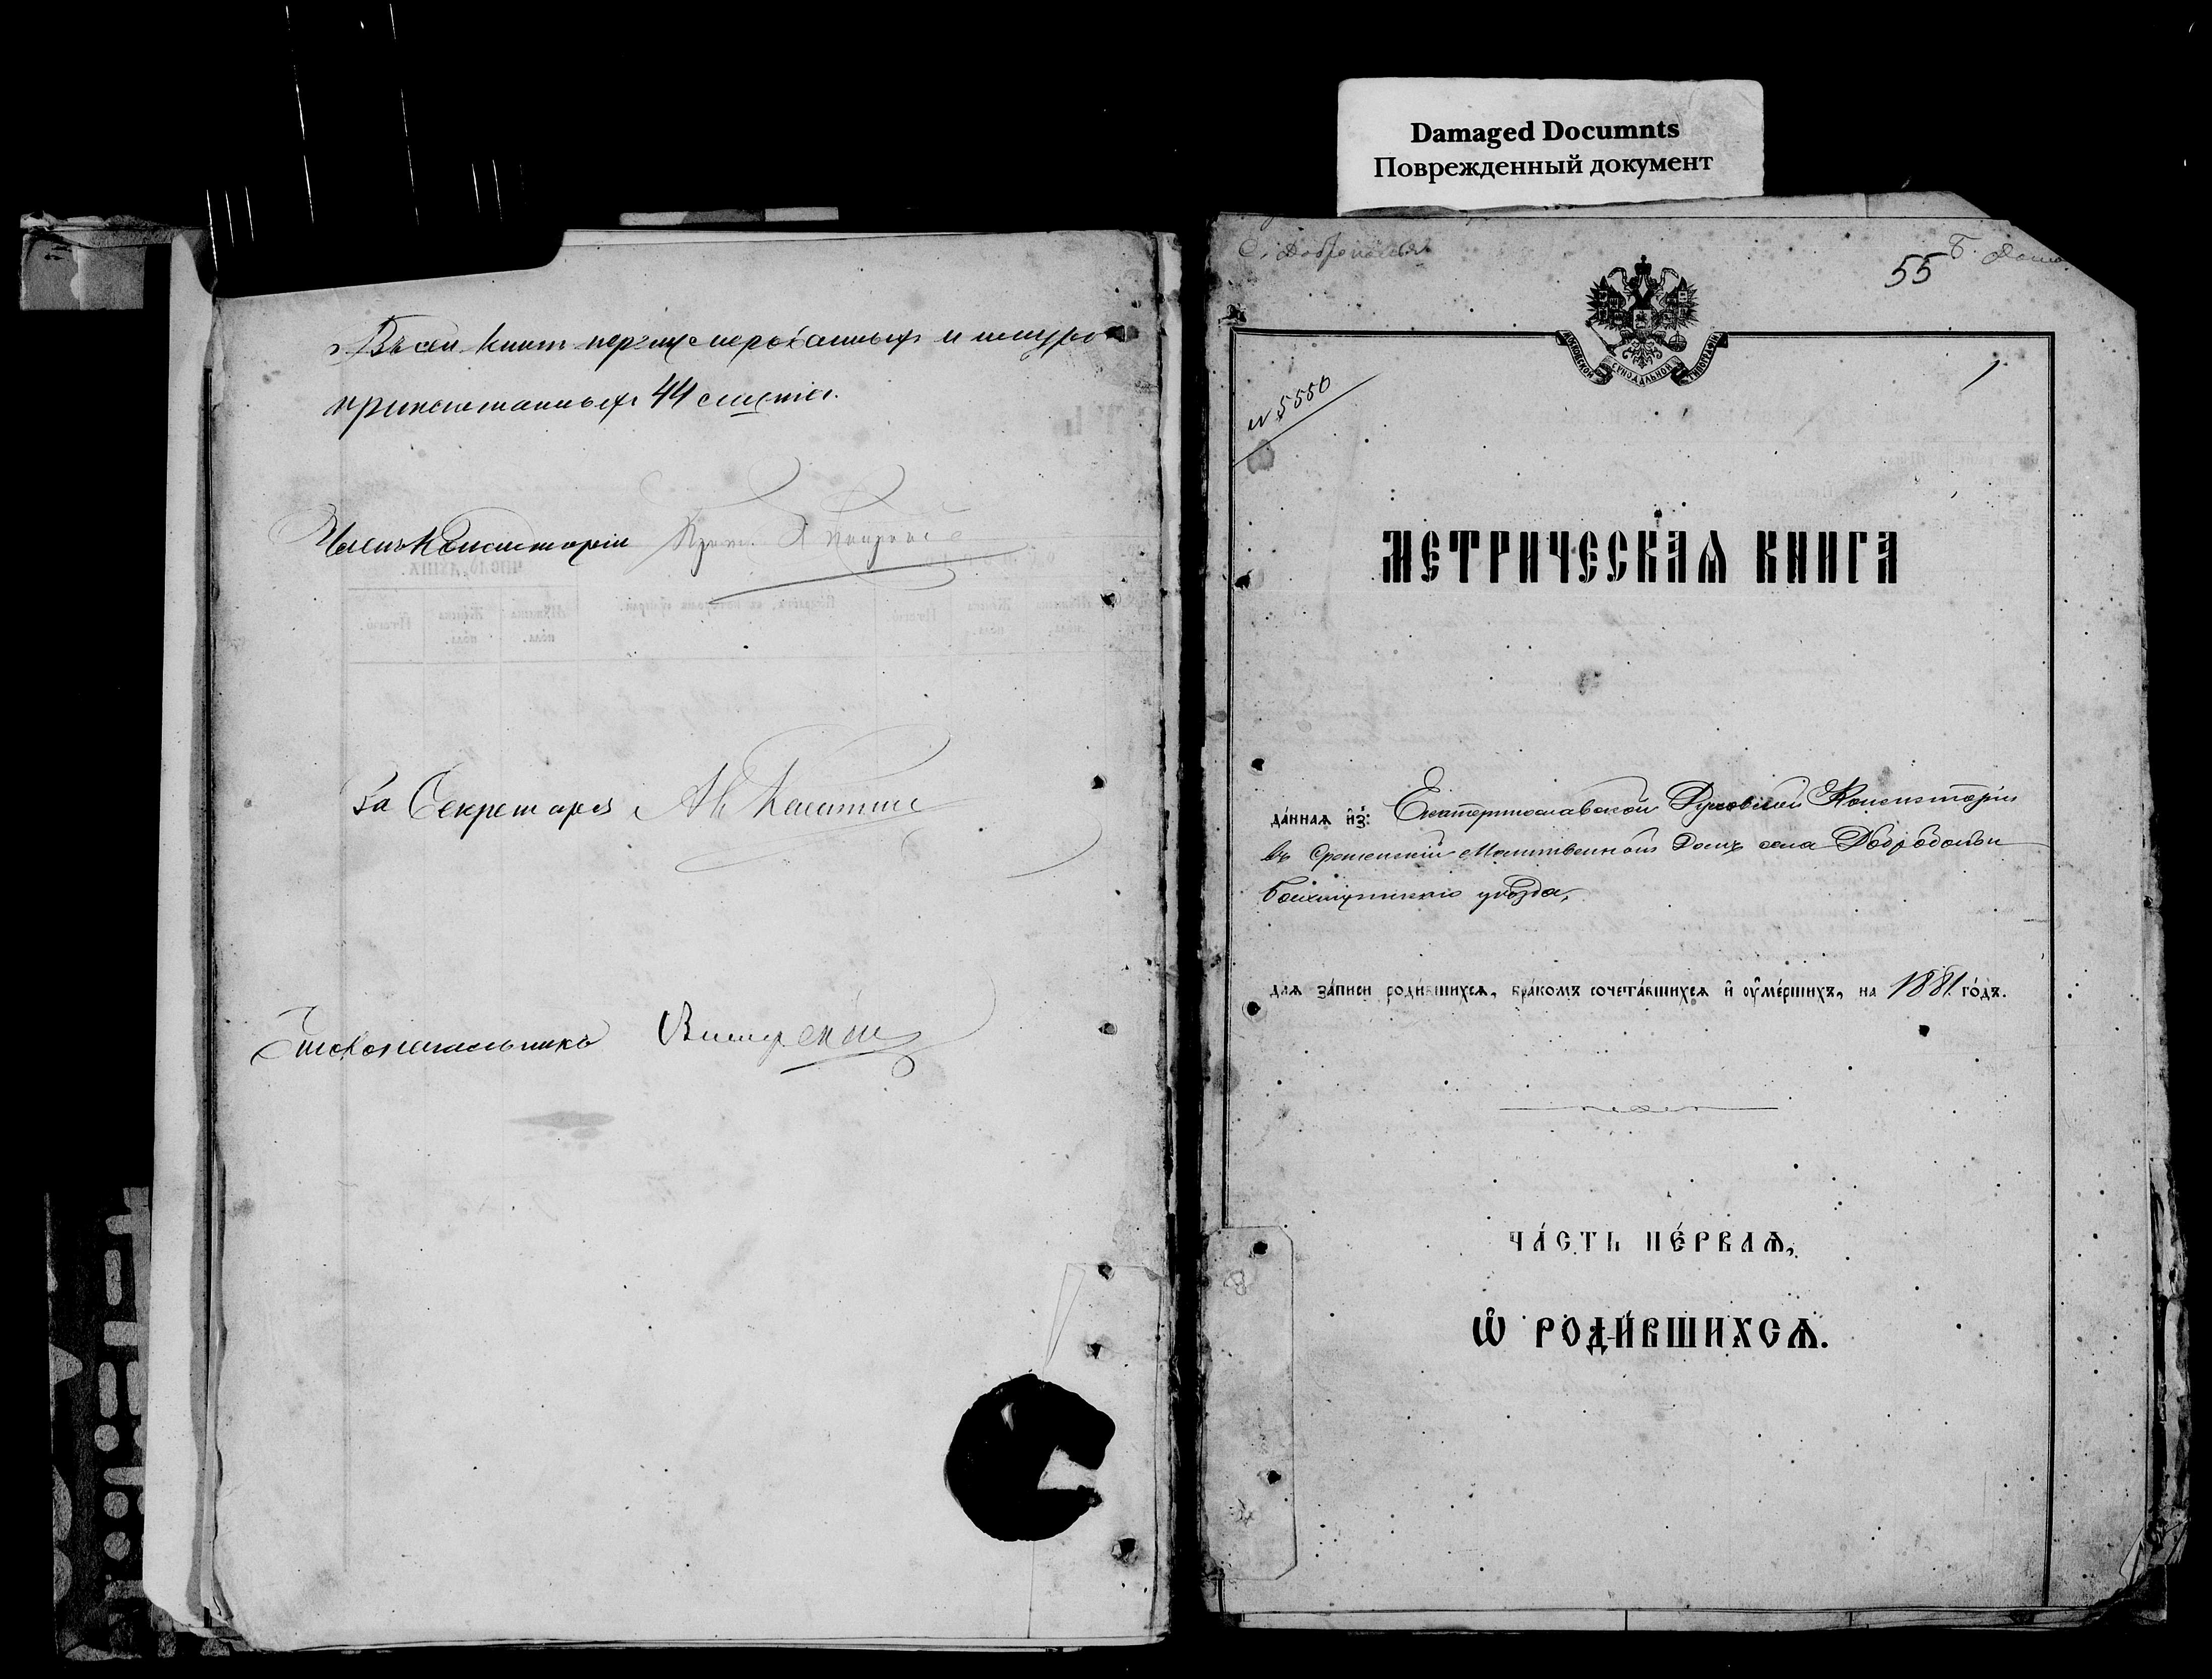 Damaged Documnts
Поврежденный документ
Въ сей книгѣ перенумерованныхъ и шнуро
припечатанныхъ 44 листа.
Членъ Консисторіи
За Секретаря
Столоначальникъ
С. Доброполья
55
МОСКОВСКОЙ СѴНОДАЛЬНОЙ ТИПОГРАФІИ
№ 5550
1
МЕТРИЧЕСКАѦ КНИГА
да́ннаѧ и҆з̾: Екатеринославской Духовной Консисторіи
въ Срѣтенскій Молитвенной Домъ села Доброполья
Бахмутскаго уѣзда,
для за́писи роди́вшихсѧ, бра́комъ сочета́вшихсѧ и҆ ᲂу҆ме́ршихъ, на 1881 го́дъ.
ЧА́СТЬ ПЕ́РВАѦ,
Ѽ РОДИ́ВШИХСѦ.